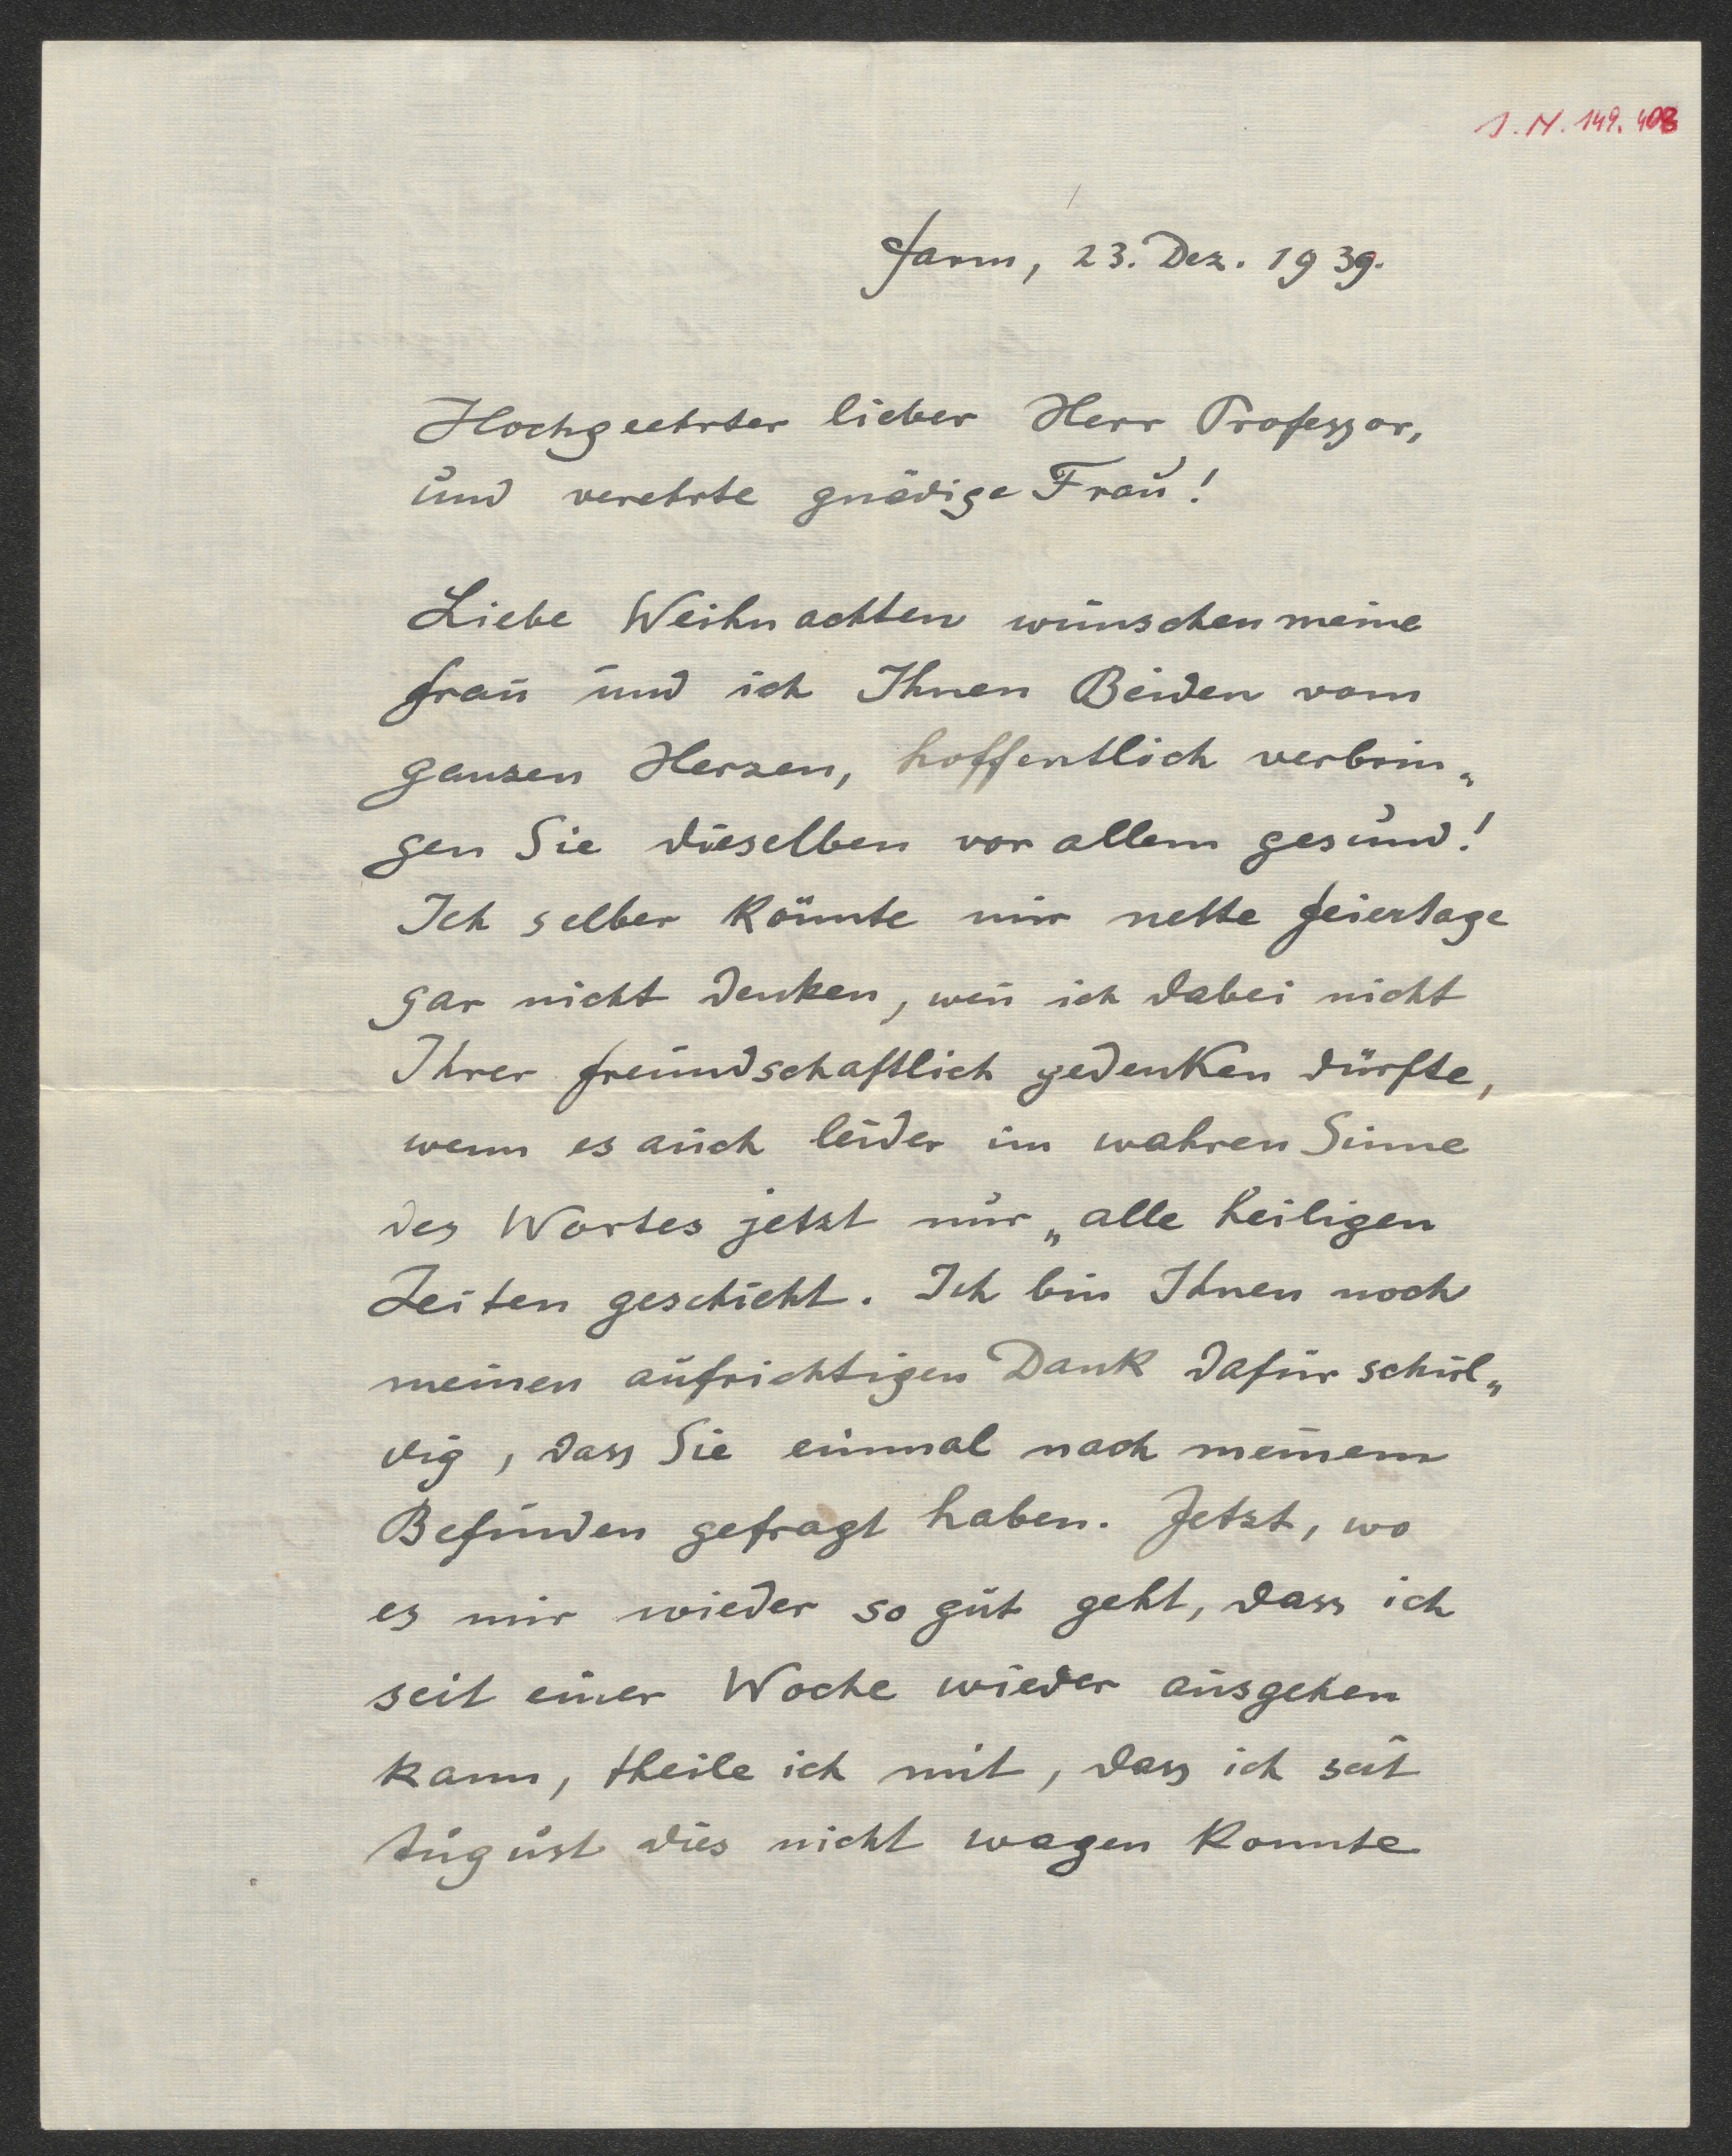 J. N. 149.408
Farm, 23. Dez. 1939.
Hochgeehrter lieber Herr Professor,
und verehrte gnädige Frau!
Liebe Weihnachten wünschen meine
Frau und ich Ihnen Beiden vom
ganzen Herzen, hoffentlich verbrin„
gen Sie dieselben vor allem gesund!
Ich selber könnte mir nette Feiertage
gar nicht denken, weñ ich dabei nicht
Ihrer freundschaftlich gedenken dürfte,
wenn es auch leider im wahren Sinne
des Wortes jetzt nur „alle heiligen
Zeiten geschieht. Ich bin Ihnen noch
meinen aufrichtigen Dank dafür schul„
dig, dass Sie einmal nach meinem
Befinden gefragt haben. Jetzt, wo
es mir wieder so gut geht, dass ich
seit einer Woche wieder ausgehen
kann, theile ich mit, dass ich seit
August dies nicht wagen konnte